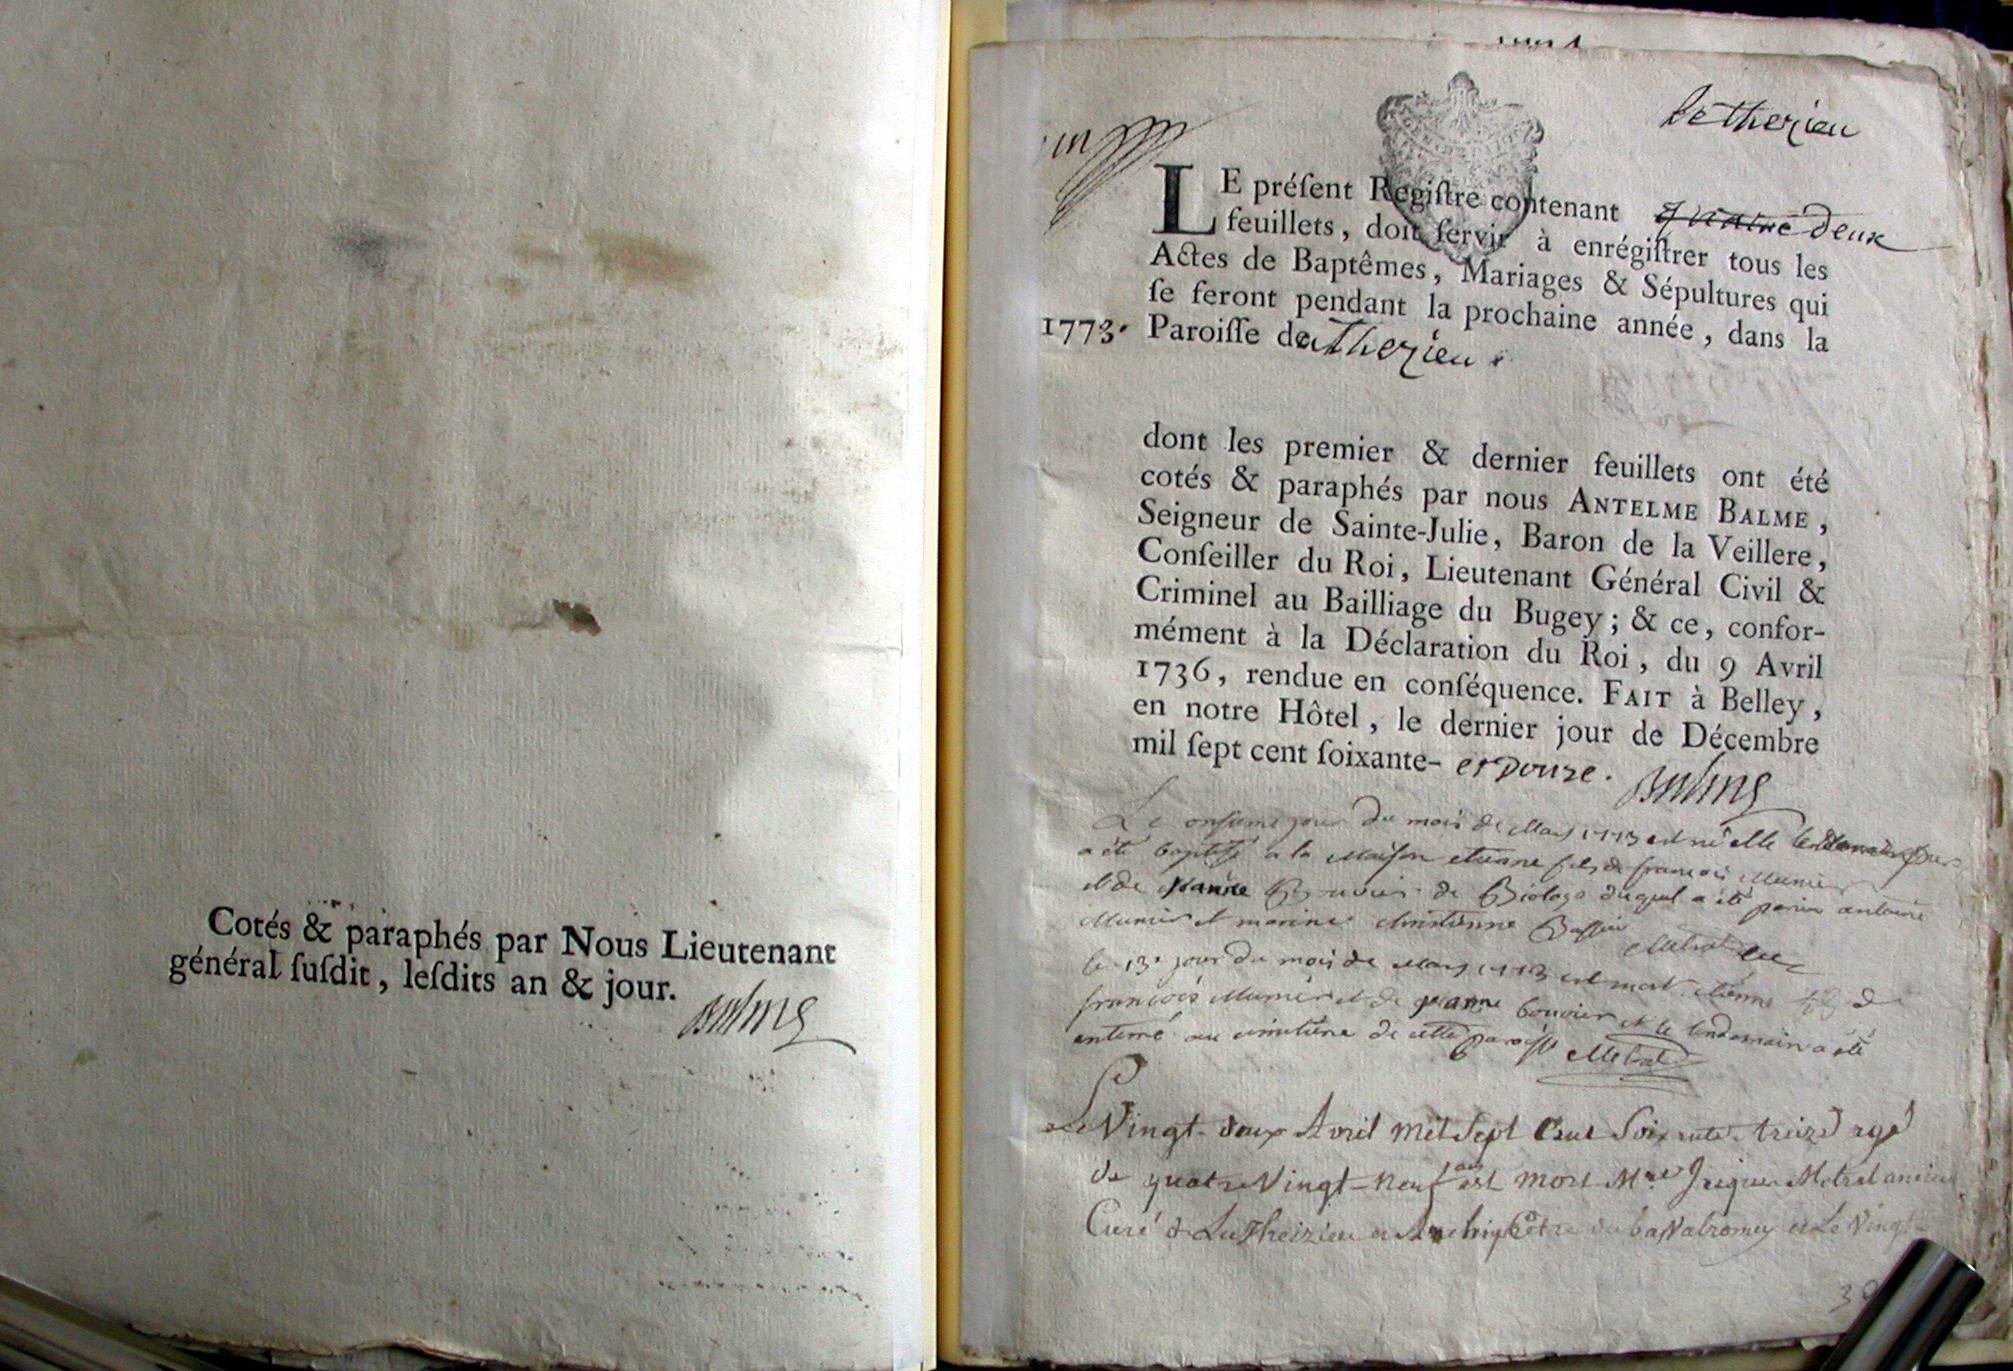 Cotés & paraphés par Nous Lieutenant
général ſuſdit, leſdits an & jour.
Balme
Letherieu
LE préſent Regiſtre contenant quatre deux
feuillets, doit ſervir à enrégiſtrer tous les
Actes de Baptêmes, Mariages & Sépultures qui
ſe feront pendant la prochaine année, dans la
1773. Paroiſſe de
dont les premier & dernier feuillets ont été
cotés & paraphés par nous ANTELME BALME,
Seigneur de Sainte-Julie, Baron de la Veillere,
Conſeiller du Roi, Lieutenant Général Civil &
Criminel au Bailliage du Bugey; & ce, confor-
mément à la Déclaration du Roi, du 9 Avril
1736, rendue en conſéquence. FAIT à Belley,
en notre Hôtel, le dernier jour de Décembre
mil ſept cent ſoixante- et douze.
Balme
Le onsieme jour du mois de Mars 1773 est né et le lendemain
a été baptisé a la Maison etienne fils de francois Munier
et de jeanne Bouvier de duquel a été parin antoine
Munier et marine
Metral curé
le 13e jour du mois de Mars 1773 est mort etienne fils de
francois Munier et de jeanne bouvier et le lendemain a été
enterré au cimetiere de cette paroisse Metral
Le Vingt-deux Avril Mil Sept Cent Soixante-treize agé
de quatre Vingt-neuf ans est mort Mre Jacques Metral ancien
Curé de Lutheizieu et Archiprêtre du bas Valromey et Le Vingt-